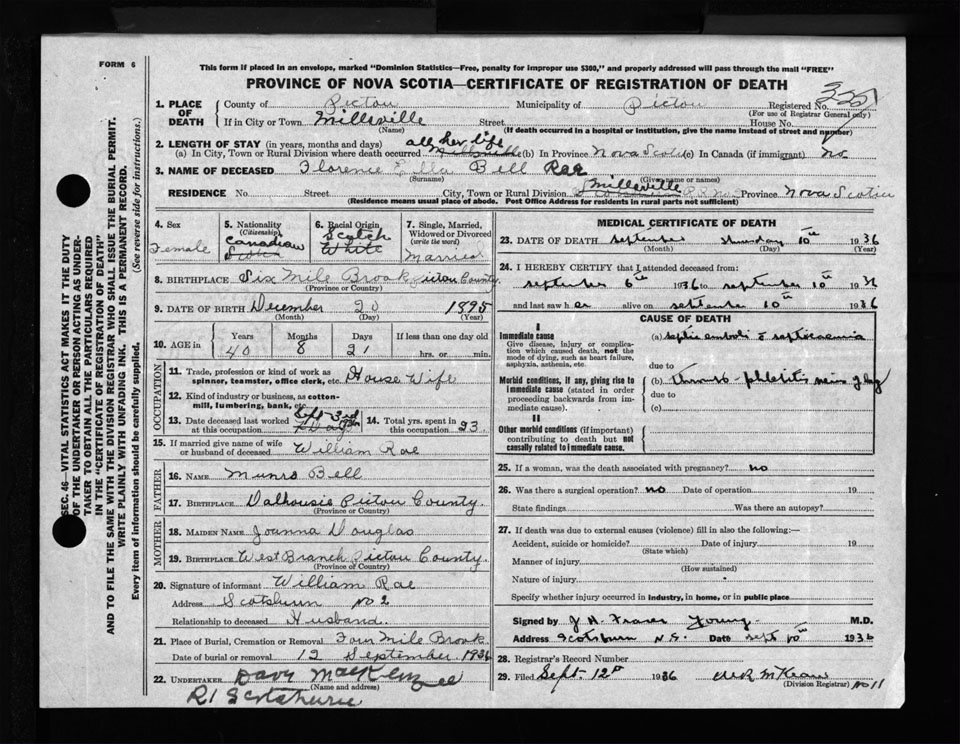 FORM 6
This form if placed in an envelope, marked "Dominion Statistics—Free, penalty for improper use $300," and properly addressed will pass through the mail "FREE"
PROVINCE OF NOVA SCOTIA—CERTIFICATE OF REGISTRATION OF DEATH
SEC. 46—VITAL STATISTICS ACT MAKES IT THE DUTY
OF THE UNDERTAKER OR PERSON ACTING AS UNDER-
TAKER TO OBTAIN ALL THE PARTICULARS REQUIRED
IN THE "CERTIFICATE OF REGISTRATION OF DEATH"
AND TO FILE THE SAME WITH THE DIVISION REGISTRAR WHO SHALL ISSUE THE BURIAL PERMIT.
WRITE PLAINLY WITH UNFADING INK. THIS IS A PERMANENT RECORD.
Every item of information should be carefully supplied. (See reverse side for instructions.)
1. PLACE OF DEATH
County of Pictou Municipality of Pictou Registered No.
(For use of Registrar General only)
If in City or Town Millsville Street House No.
(Name) (If death occurred in a hospital or institution, give the name instead of street and number)
2. LENGTH OF STAY (in years, months and days) all her life
(a) In City, Town or Rural Division where death occurred Millsville (b) In Province Nova Scotia (c) In Canada (if immigrant) no
3. NAME OF DECEASED Florence Ella Bell Rae
(Surname) (Given name or names)
RESIDENCE No. Street City, Town or Rural Division Millsville Scotsburn R.R. No 2 Province Nova Scotia
(Residence means usual place of abode. Post Office Address for residents in rural parts not sufficient)
4. Sex
Female
5. Nationality (Citizenship)
Canadian
6. Racial Origin
Scotch
White
7. Single, Married, Widowed or Divorced (write the word)
Married
8. BIRTHPLACE Six Mile Brook Pictou County
(Province or Country)
9. DATE OF BIRTH December 20 1895
(Month) (Day) (Year)
10. AGE in Years 40 Months 8 Days 21 If less than one day old hrs. or min.
OCCUPATION
11. Trade, profession or kind of work as spinner, teamster, office clerk, etc. House Wife
12. Kind of industry or business, as cotton-mill, lumbering, bank, etc.
13. Date deceased last worked at this occupation Sept 3rd
14. Total yrs. spent in this occupation 23
15. If married give name of wife or husband of deceased William Rae
FATHER
16. NAME Munro Bell
17. BIRTHPLACE Dalhousie Pictou County
(Province or Country)
MOTHER
18. MAIDEN NAME Joanna Douglas
19. BIRTHPLACE West Branch Pictou County
(Province or Country)
20. Signature of informant William Rae
Address Scotsburn No 2
Relationship to deceased Husband
21. Place of Burial, Cremation or Removal Four Mile Brook
Date of burial or removal 12 September 1936
22. UNDERTAKER Davy MacKenzie
(Name and address)
R1 Scotsburn
MEDICAL CERTIFICATE OF DEATH
23. DATE OF DEATH September Thursday 10th 1936
(Month) (Day) (Year)
24. I HEREBY CERTIFY that I attended deceased from:
September 6th 1936 to September 10th 1936
and last saw her alive on September 10th 1936
CAUSE OF DEATH
I
Immediate cause
Give disease, injury or complication which caused death, not the mode of dying, such as heart failure, asphyxia, asthenia, etc.
(a) septic emboli & septicaemia
due to
Morbid conditions, if any, giving rise to immediate cause (stated in order proceeding backwards from immediate cause).
(b) Thrombo-phlebitis
due to
(c)
II
Other morbid conditions (if important) contributing to death but not causally related to immediate cause.
25. If a woman, was the death associated with pregnancy? no
26. Was there a surgical operation? no Date of operation 19
State findings Was there an autopsy?
27. If death was due to external causes (violence) fill in also the following:—
Accident, suicide or homicide? Date of injury 19
(State which)
Manner of injury
(How sustained)
Nature of injury
Specify whether injury occurred in industry, in home, or in public place
Signed by J. H. Fraser Young M.D.
Address Scotsburn N.S. Date Sept 10th 1936
28. Registrar's Record Number
29. Filed Sept. 12th 1936
(Division Registrar) No 11